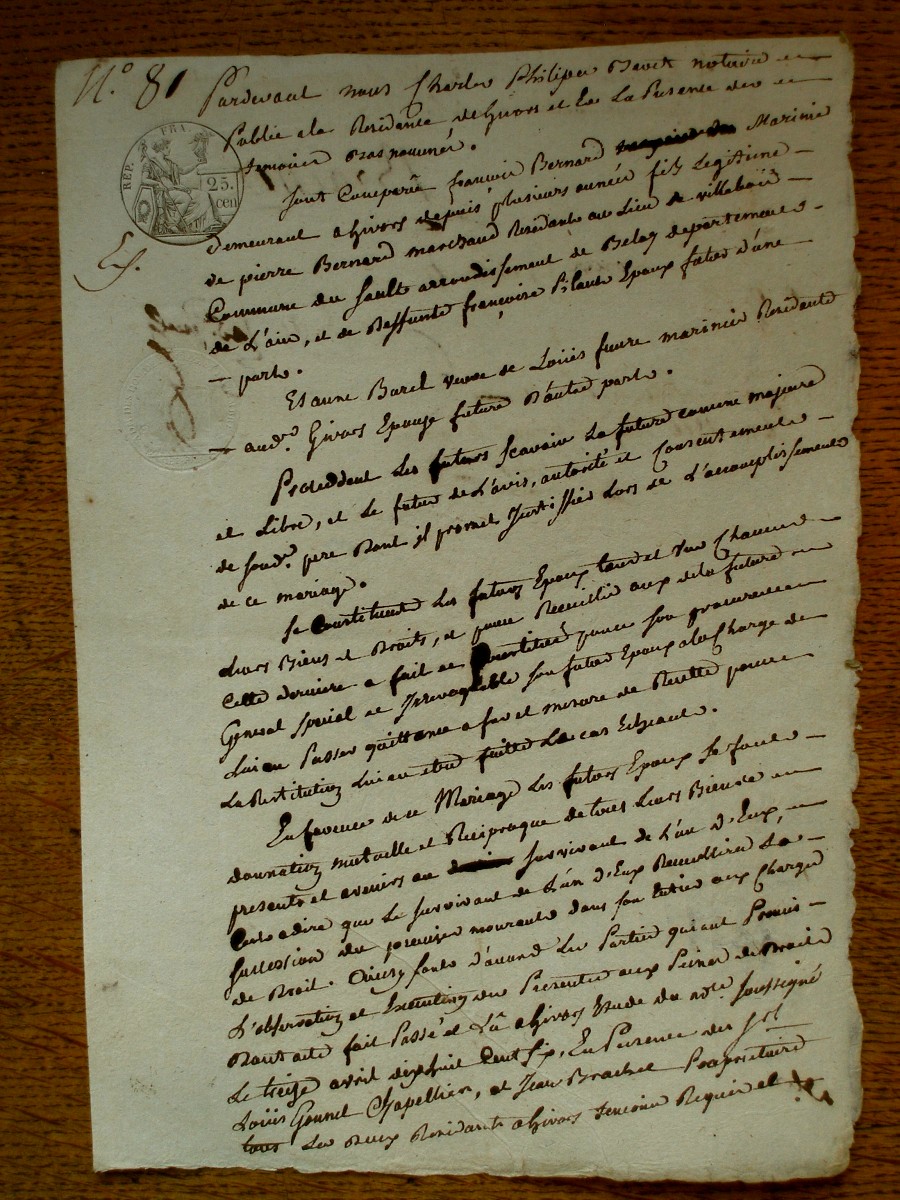 N.° 81
Pardevant nous Charles Philipes notaire
Public a la Residance de Givors et En La Presence des
temoins Bas nommés.
REP. FRA.
25.
cen
sont Comparû françois Bernard Marinié
Demeurant a Givors depuis plusieurs année fils Legitime
de pierre Bernard marchand Residante au Lieu de villebois
Commune du Sault arrondissement de Beley departement
de L'ain, et de Deffunte françoise Blanc Epoux futur d'une
parte.
Et anne Burel veuve de Loüis favre marinier Residante
aud.t Givors Epouze future D'autre parte.
Proceddent Les futurs scavoir La future comme majeure
et Libre, et Le futur de L'avis, autorité et Consentement
de sond.t pere Dont il promet Justiffier Lors de L'accomplissement
de ce mariage.
se Constituent Les futurs Epoux tout et Chacuns
Leurs Biens et Droits, et pour Recuillir ceux de la future
Cette derniere a fait et Constitué pour son procureur
General spécial et Irrevoquable son futur Epoux a la Charge de
Lui en Passer quittance a fur et mesure de Recette pour
La Restitution Lui en etre faitte Le cas Echeant.
En faveur de ce Mariage Les futurs Epoux se font
donnation mutuelle et Reciproque de tous Leurs Biens
presents et avenirs au survivant de L'un d'Eux,
Cest adire que Le survivant de L'un d'Eux Recuillira La
succession du premier mourant dans son Entier aux Charge
de Droit. Ainsy fait d'accord Les Parties qui ont Promis
L'observation et Execution du Presentes aux Peines de Droit
Dont acte fait Passé et Lû a Givors Etude du not.e soussigné
Le treize avril dix huit Cent six, En Presence des S.rs
Loüis Gonnet Chapellier, et Jean Brachet Propriétaire
Les deux Residants a Givors temoins Requis et